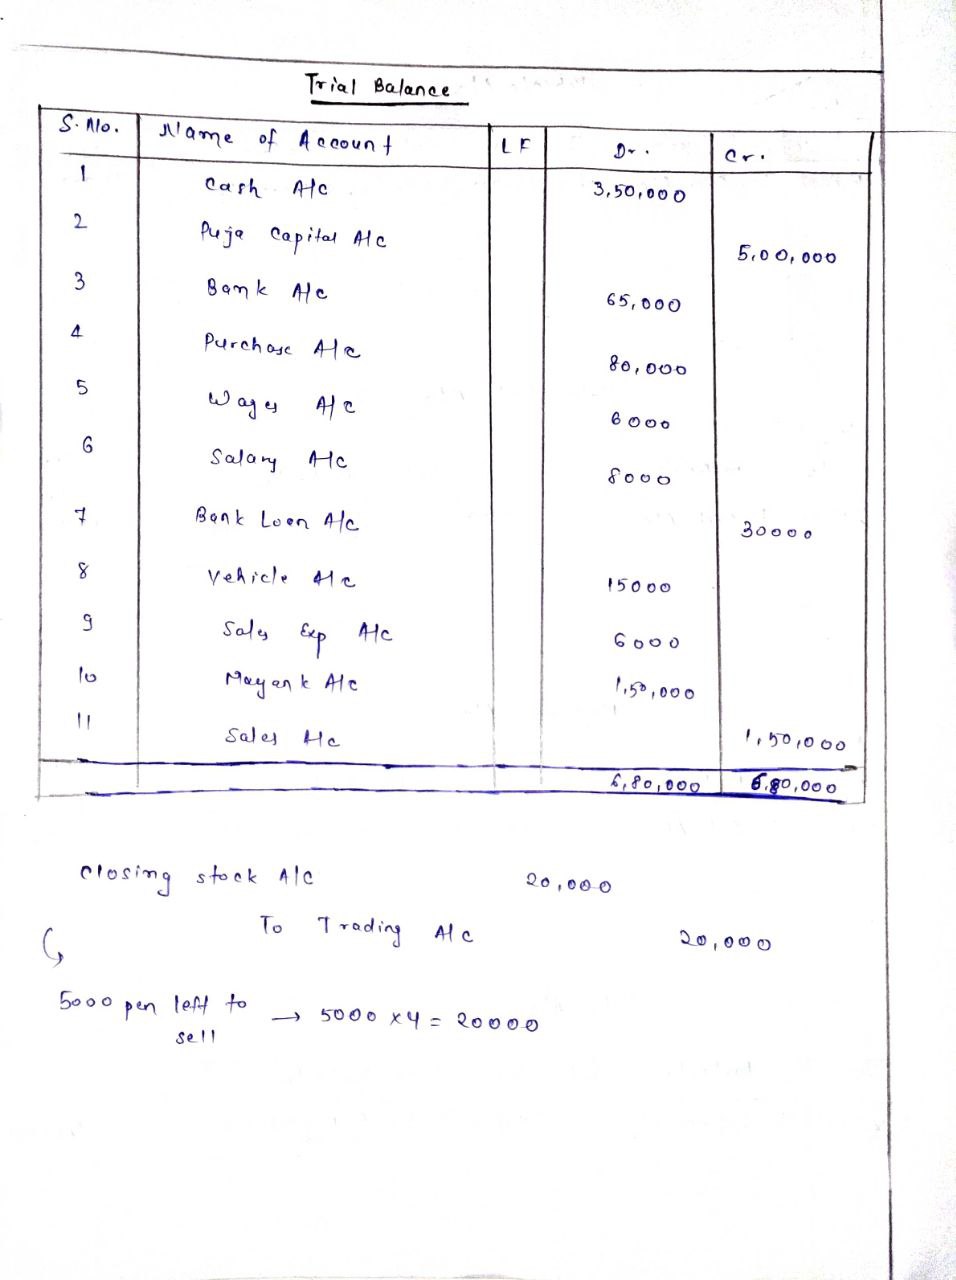 Trial Balance
S.No. Name of Account LF Dr. Cr.
1 Cash A/c 3,50,000
2 Puja Capital A/c 5,00,000
3 Bank A/c 65,000
4 Purchase A/c 80,000
5 Wages A/c 6000
6 Salary A/c 8000
7 Bank Loan A/c 30000
8 Vehicle A/c 15000
9 Sales Exp A/c 6000
10 Mayank A/c 1,50,000
11 Sales A/c 1,50,000
6,80,000 6,80,000
Closing stock A/c 20,000
To Trading A/c 20,000
5000 pen left to sell → 5000 x 4 = 20000